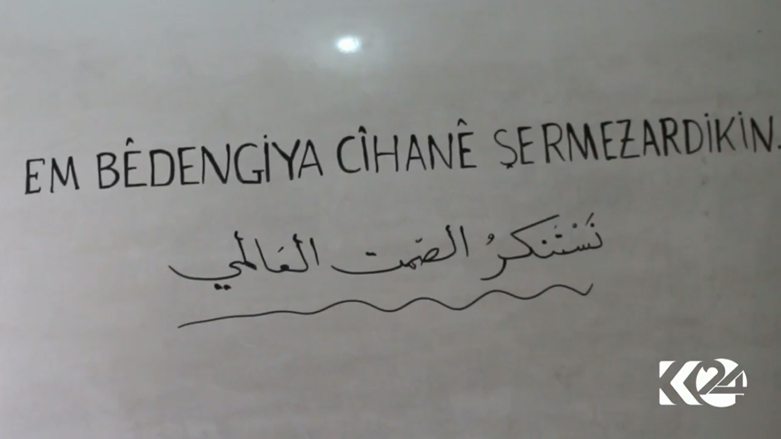 EM BÊDENGİYA CÎHANÊ ŞERMEZARDİKİN.
نَسْتَنكرُ الصّمت العَالمي
K24